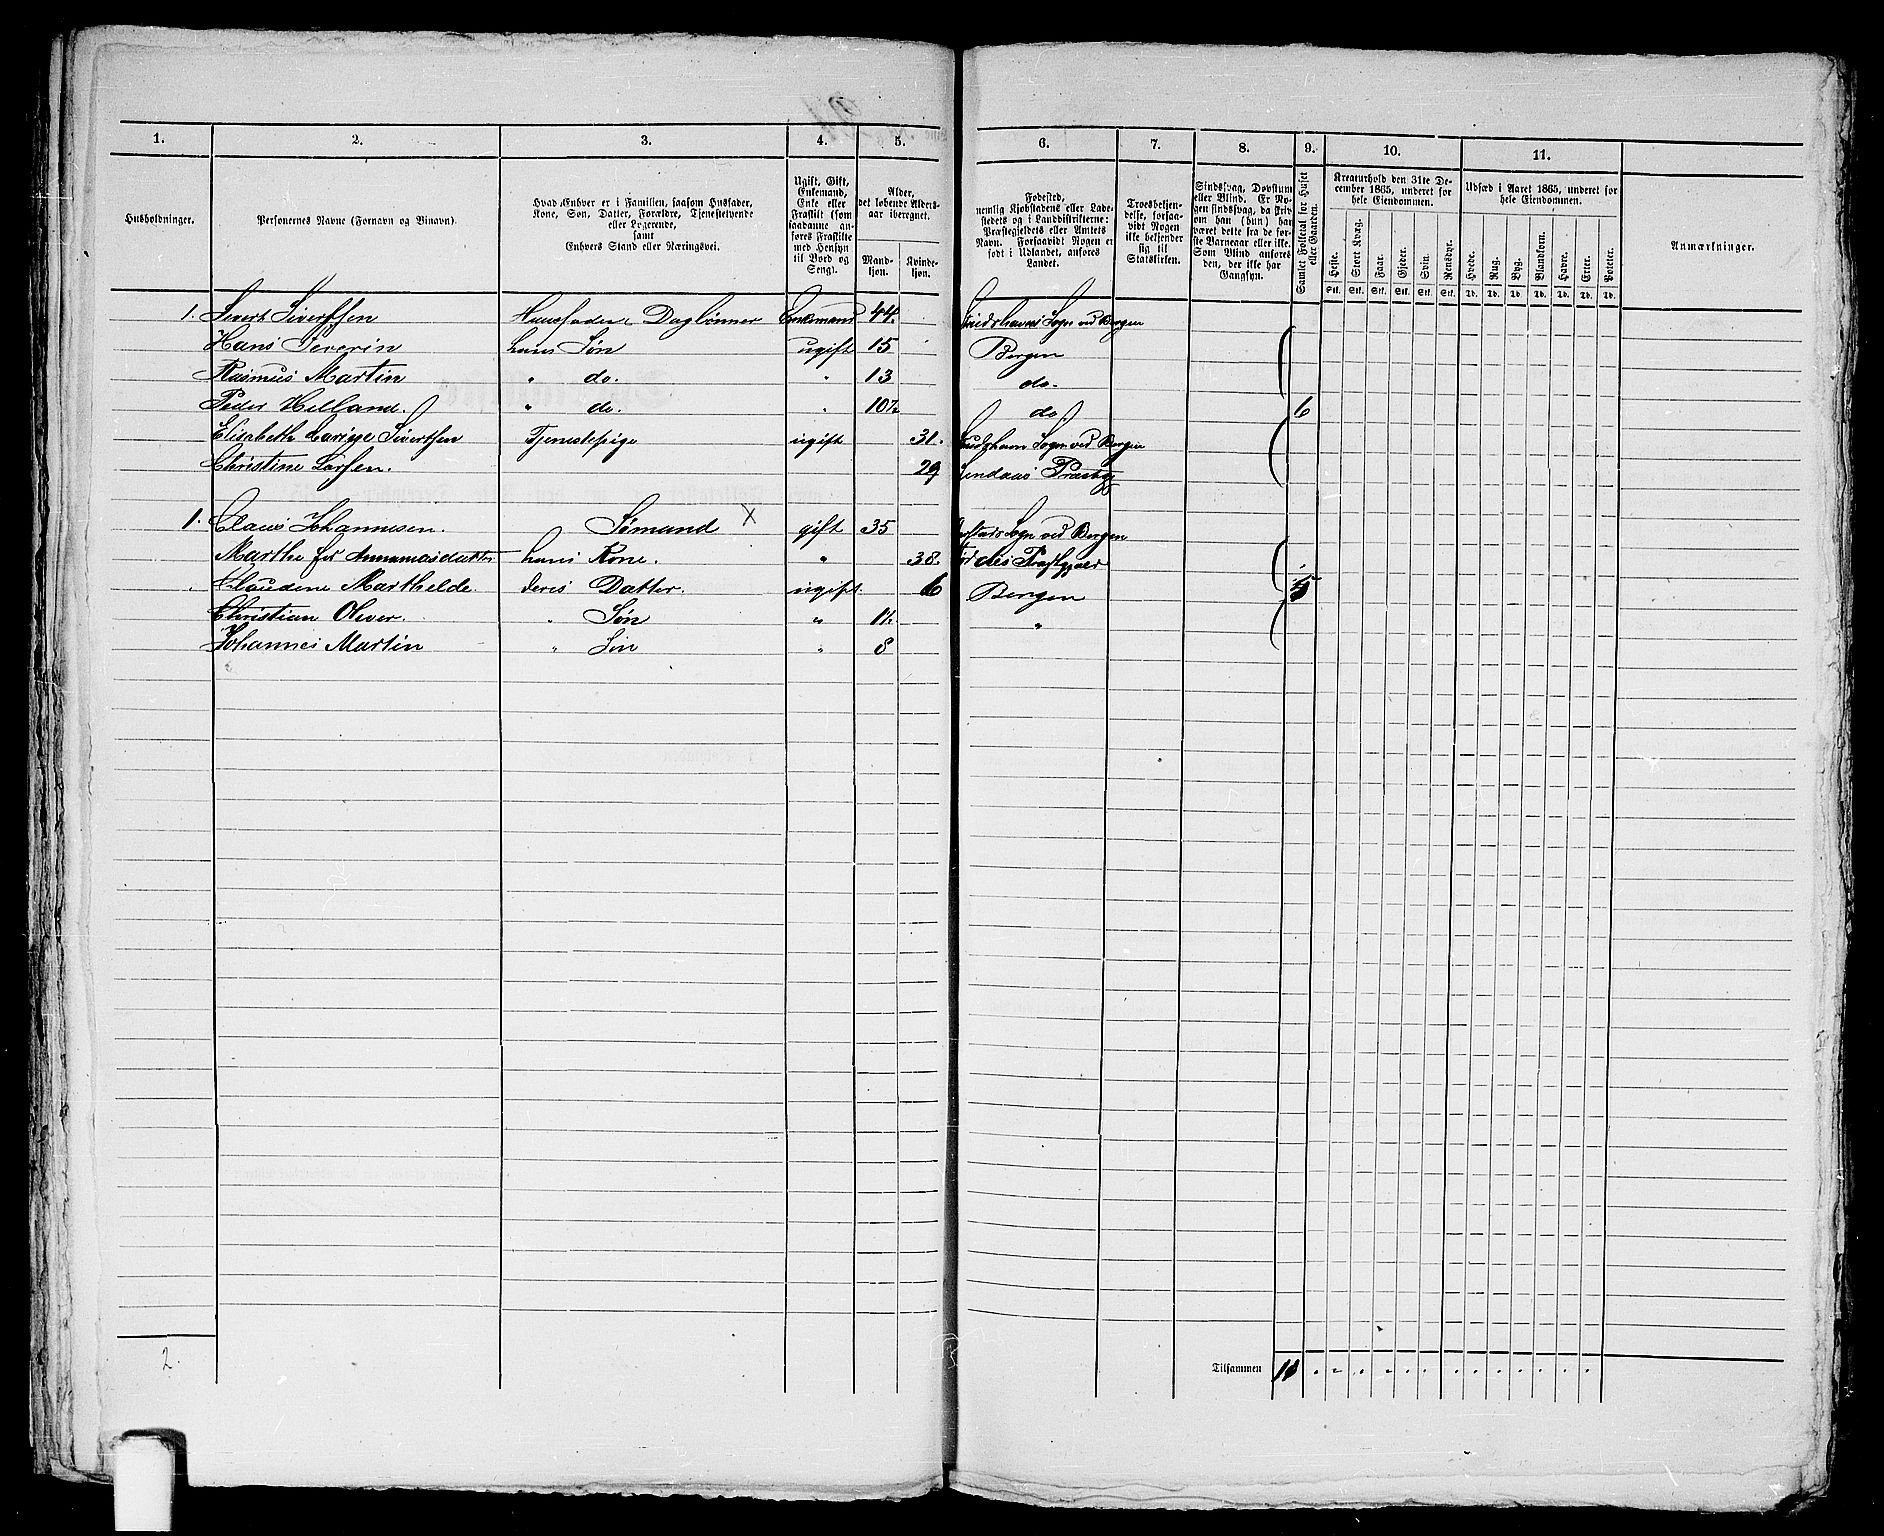 1. 2. 3. 4. 5. 6. 7. 8. 9. 10. 11.
Husholdninger.
Personernes Navne (Fornavn og Binavn).
Hvad Enhver er i Familien, saasom Husfader,
Kone, Søn, Datter, Forældre, Tjenestetyende
eller Logerende,
samt
Enhvers Stand eller Næringsvei.
Ugift, Gift,
Enkemand,
Enke eller
Fraskilt (som
saadanne an-
føres Fraskilte
med Hensyn
til Bord og
Seng).
Alder,
det løbende Alders-
aar iberegnet.
Mand-
kjøn.
Kvinde-
kjøn.
Fødested,
nemlig Kjøbstadens eller Lade-
stedets og i Landdistrikterne:
Præstegjeldets eller Amtets
Navn. Forsaavidt Nogen er
født i Udlandet, anføres
Landet.
Troesbekjen-
delse, forsaa-
vidt Nogen
ikke bekjender
sig til
Statskirken.
Sindssvag, Døvstum
eller Blind. Er No-
gen sindssvag, da skriv
om han (hun) har
været dette fra de før-
ste Barneaar eller ikke.
Som Blind anføres
den, der ikke har
Gangsyn.
Samlet Folketal for Huset
eller Gaarden.
Kreaturhold den 31te De-
cember 1865, underet for
hele Eiendommen.
Heste. Stort Kvæg. Faar. Gjeder. Svin. Rensdyr.
Stk. Stk. Stk. Stk. Stk. Stk.
Udsæd i Aaret 1865, underet for
hele Eiendommen.
Hvede. Rug. Byg. Blandkorn. Havre. Erter. Poteter.
Td. Td. Td. Td. Td. Td. Td.
Anmærkninger.
1. Sivert Siverssen Huusfader, Daglønner Enkemand 44. Sogn ved Bergen
Hans Severin hans Søn ugift 15 Bergen
Rasmus Martin " do. " 13 do.
Peder Helland. " do. " 10½ do. 6
Elisabeth Sivertsen Tjenestepige ugift 31. Sogn ved Bergen
Christine Larsen. 29 Lindaas Præstg
1. Claus Johannesen. Sømand X gift 35 Sogn ved Bergen
Marthe hans Kone. " 38.
Claudene Marthelde. deres Datter. ugift. 6 Bergen 5
Christian Olever. " Søn " 11. "
Johannes Martin " Søn " 8
2.
Tilsammen 11 " " " " " " " " " " " "